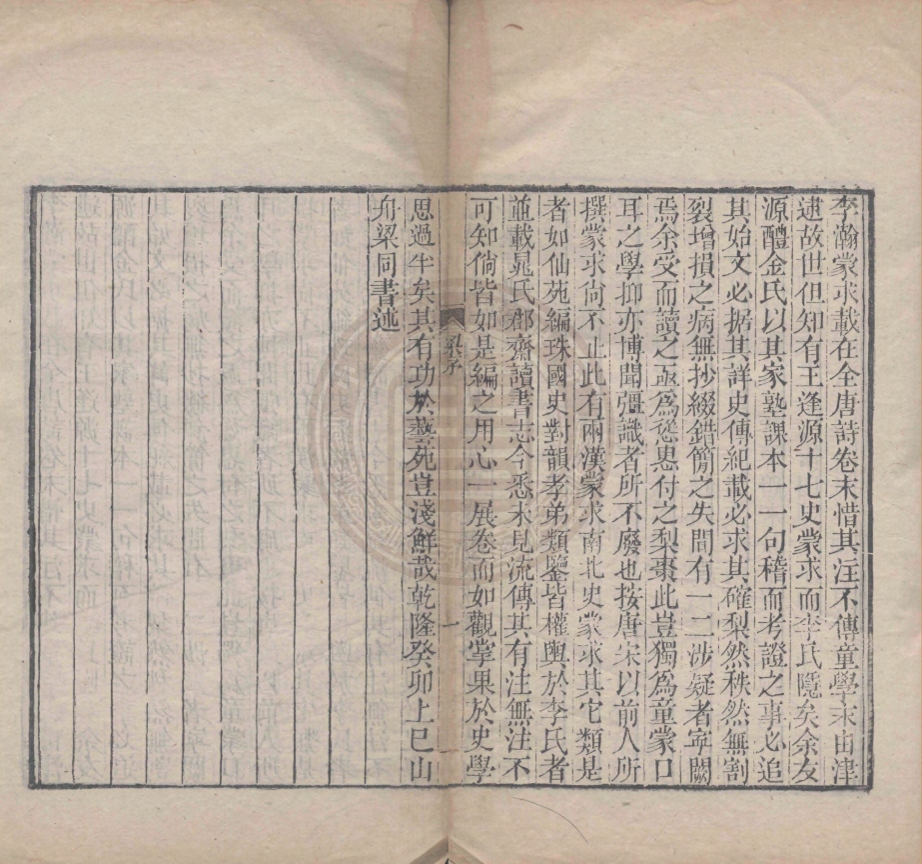 李瀚蒙求載在全唐詩卷末惜其注不傳童學未由津
逮故世但知有王逢源十七史蒙求而李氏隱矣余友
源醴金氏以其家塾課本一一句稽而考證之事必追
其始文必据其詳史傳紀載必求其確梨然秩然無割
裂增損之病無抄綴錯簡之失間有一二涉疑者寧闕
焉余受而讀之亟爲慫恿付之梨棗此豈獨爲童蒙口
耳之學抑亦博聞彊識者所不廢也按唐宋以前人所
撰蒙求尙不止此有兩漢蒙求南北史蒙求其它類是
者如仙苑編珠國史對韻孝弟類鑒皆權輿於李氏者
並載晁氏郡齋讀書志今悉未見流傳其有注無注不
可知倘皆如是編之用心一展卷而如觀掌果於史學
梁序
一
思過半矣其有功於藝苑豈淺鮮哉乾隆癸卯上巳山
舟梁同書述